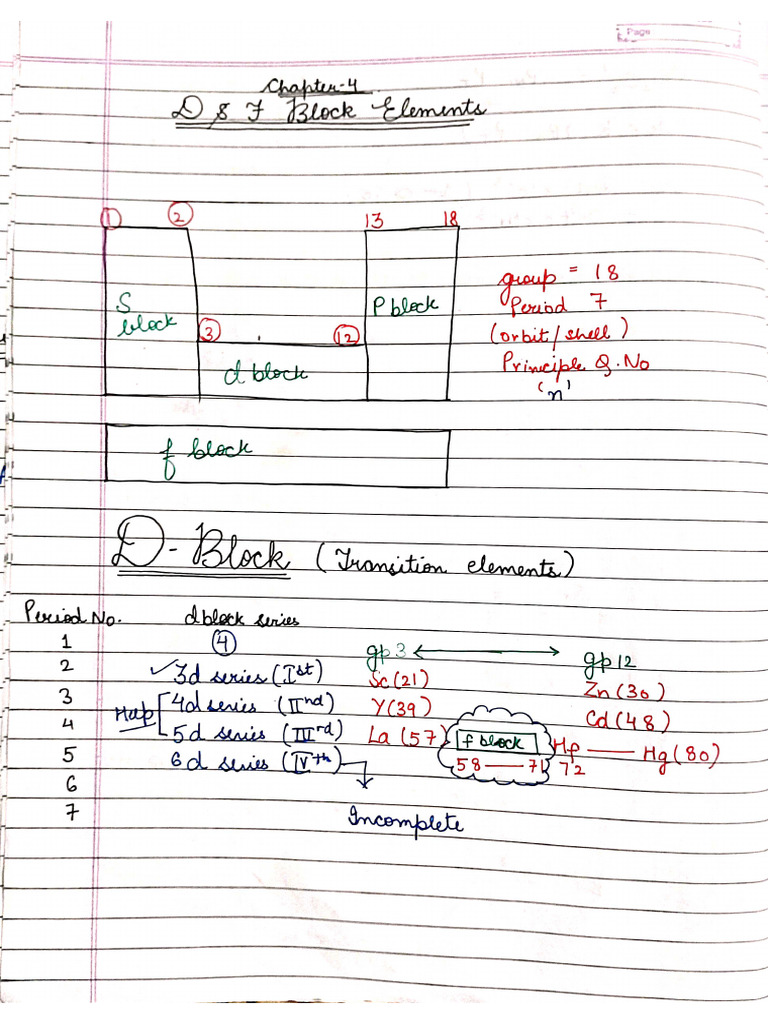 Page
Chapter-4
D & F Block Elements
① ② 13 18
S block
P block
③ ⑫
d block
group = 18
Period 7
(orbit/shell)
Principle Q.No
'n'
f block
D-Block (Transition elements)
Period No. d block series
1 ④ gp 3 gp 12
2 ✓3d series (Ist) Sc(21) Zn(30)
3 4d series (IInd) Y(39) Cd(48)
4 5d series (IIIrd) La(57) f block Hf — Hg(80)
5 6d series (IVth) 58 — 71 72
6
7 Incomplete